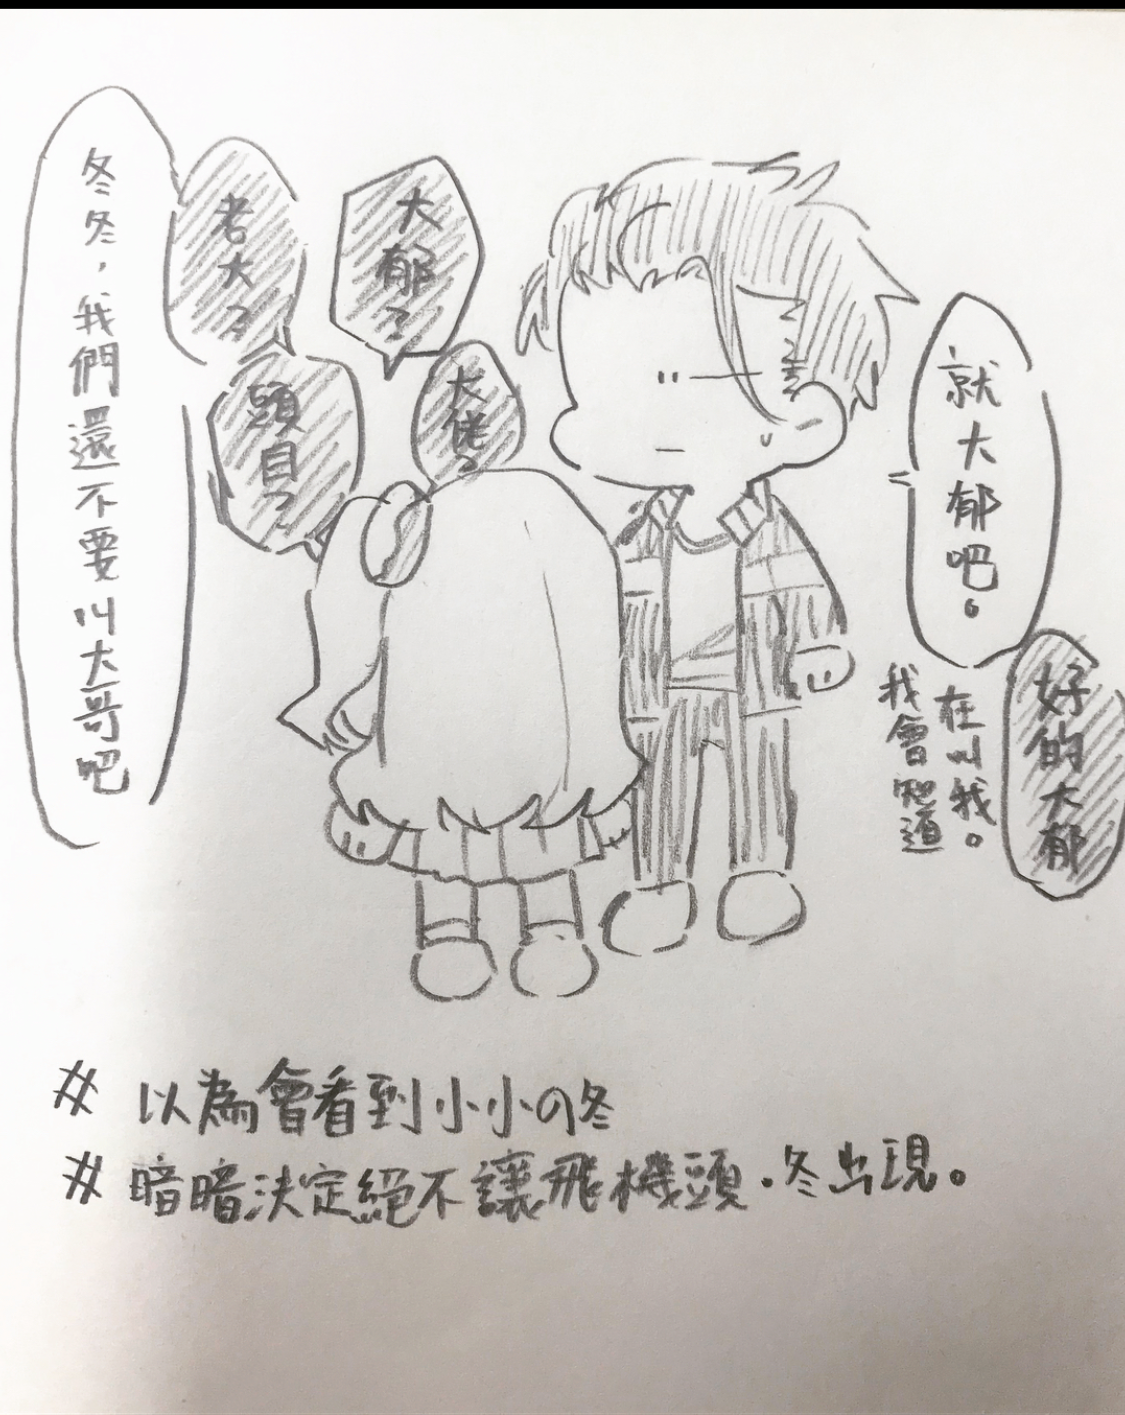 冬冬，我們還不要叫大哥吧
老大？
頭目？
大郁？
大佬？
就大郁吧。
好的大郁
在叫我。
我會知道
# 以為會看到小小の冬
# 暗暗決定絕不讓飛機頭．冬出現。